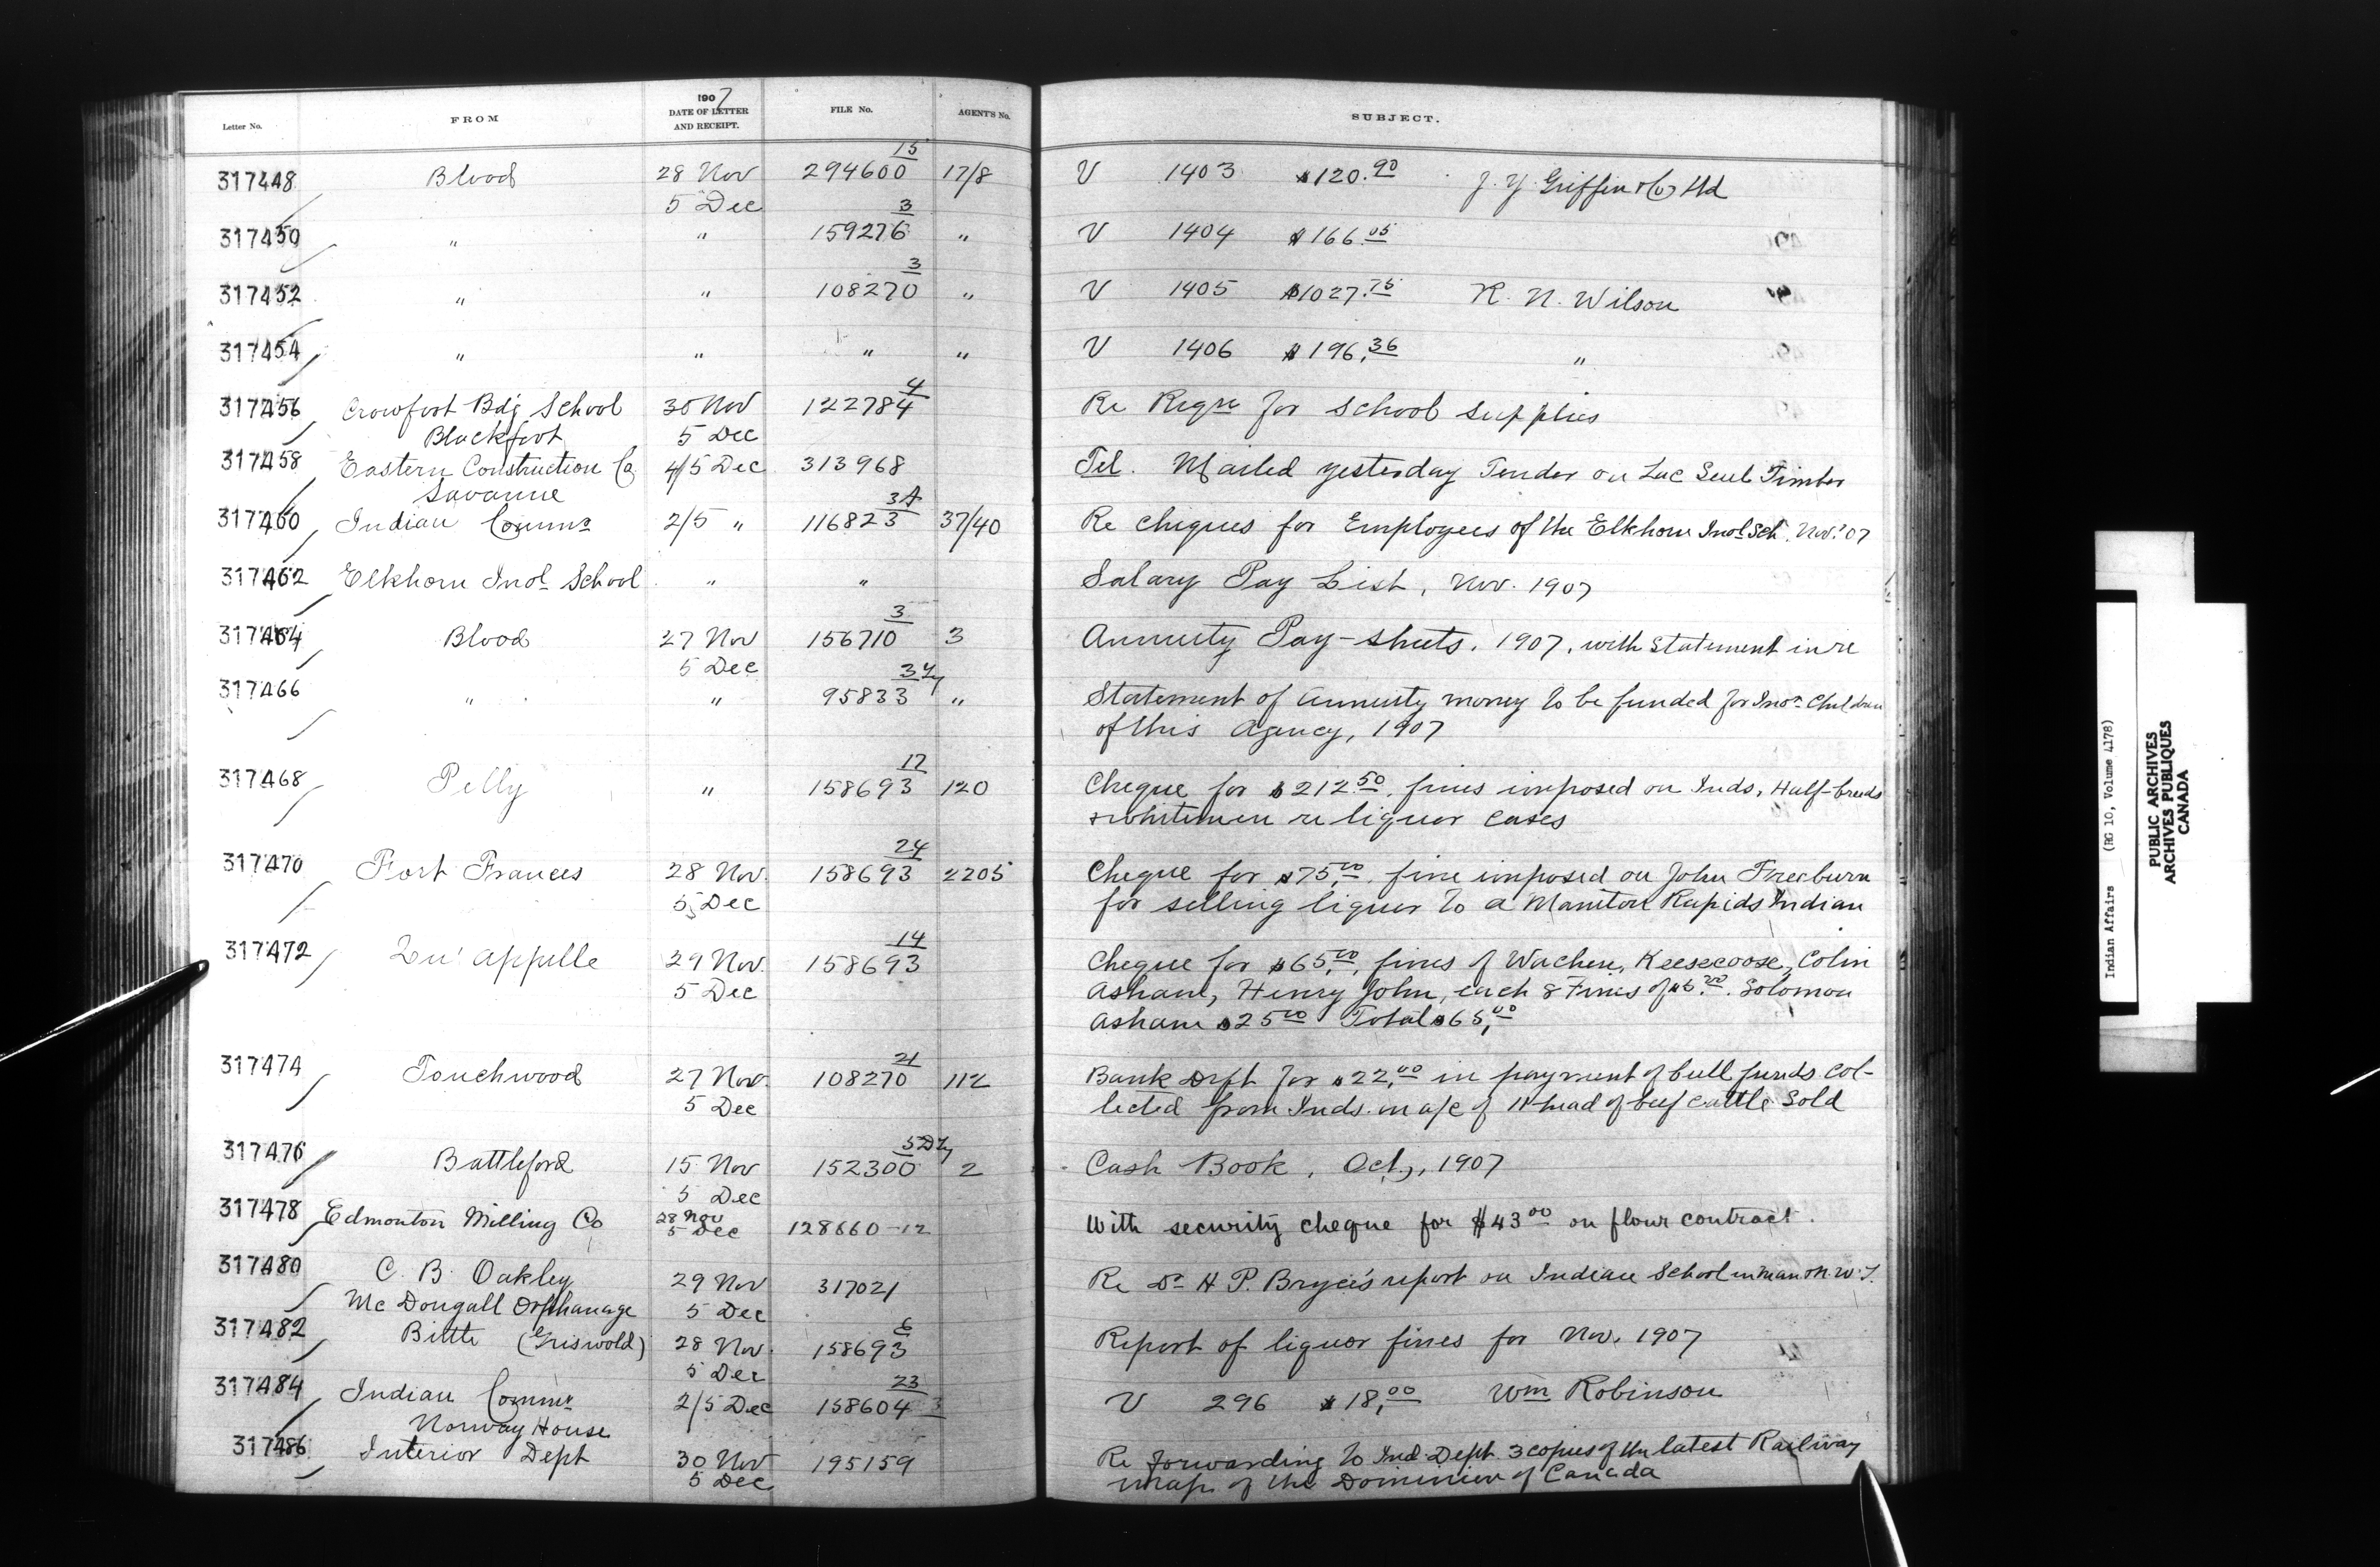 1907
Letter No. FROM DATE OF LETTER AND RECEIPT. FILE No. AGENT'S No. SUBJECT.
15
317448 Blood 28 Nov 294600 17/8 V 1403 $120.90 J. Y. Griffin & Co Ltd
5 Dec
3
317450 " " 159276 " V 1404 $166.05
3
317452 " " 108270 " V 1405 $1027.75 R. N. Wilson
317454 " " " " V 1406 $196.36 "
4
317456 Crowfoot Bdg School 30 Nov 122784 Re Reqn for school supplies
Blackfoot 5 Dec
317458 Eastern Construction Co 4/5 Dec 313968 Tel. Mailed yesterday Tender on Lac Seul Timber
Savanne
3A
317460 Indian Commr 2/5 " 116823 37/40 Re cheques for Employees of the Elkhorn Indl Sch. Nov. '07
317462 Elkhorn Indl School " " Salary Pay List, Nov. 1907
3
317464 Blood 27 Nov 156710 3 Annuity Pay-sheets, 1907, with Statement in re
5 Dec
317466 " " 95833 " Statement of annuity money to be funded for Indn Children
of this Agency, 1907
17
317468 Pelly " 158693 120 Cheque for $212.50, fines imposed on Inds, Half-breeds
& whitemen re liquor cases
24
317470 Fort Frances 28 Nov. 158693 2205 Cheque for $75.00, fine imposed on John Freeburn
5 Dec for selling liquor to a Manitou Rapids Indian
14
317472 Qu'Appelle 29 Nov. 158693 Cheque for $65.00, fines of Wachen, Keesecoose, Colin
5 Dec Asham, Henry John, each 8 Fines of $5.00. Solomon
Asham $25.00 Total $65.00
21
317474 Touchwood 27 Nov. 108270 112 Bank Drft for $22.00 in payment of bull funds col-
5 Dec lected from Inds. on a/c of 11 head of beef cattle Sold
317476 Battleford 15 Nov 152300 2 Cash Book, Oct., 1907
5 Dec
317478 Edmonton Milling Co 28 Nov 128660-12 With security cheque for $43.00 on flour contract.
5 Dec
317480 C. B. Oakley 29 Nov 317021 Re Dr H P. Bryce's report on Indian School in Man & N.W.T.
Mc Dougall Orphanage 5 Dec
6
317482 Birtle (Griswold) 28 Nov. 158693 Report of liquor fines for Nov. 1907
5 Dec
23
317484 Indian Commr 2/5 Dec 158604 V 296 $18.00 Wm Robinson
Norway House
317486 Interior Dept 30 Nov 195159 Re forwarding to Ind Dept. 3 copies of the latest Railway
5 Dec maps of the Dominion of Canada
Indian Affairs (RG 10, Volume 4178)
PUBLIC ARCHIVES
ARCHIVES PUBLIQUES
CANADA